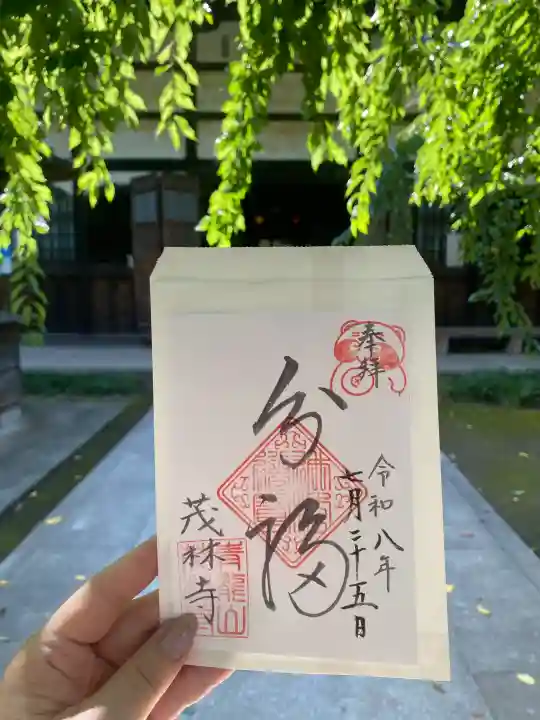 奉拜
令和八年
七月二十五日
分福
茂林寺
青龍山